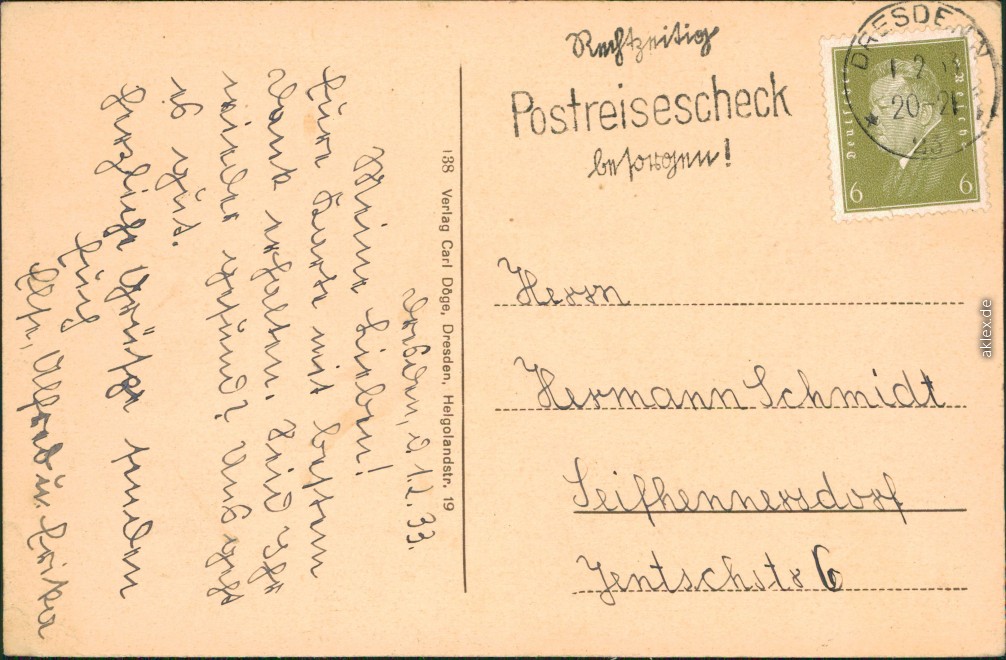 Dresden, d. 1.2.33.
Meine Lieben!
Eure Karte mit bestem
Dank erhalten. Seid Ihr
wieder gesund? Uns geht
es gut.
Herzliche Grüße senden
Euch
Alfred u. Erika
138 Verlag Carl Döge, Dresden, Helgolandstr. 19
Rechtzeitig
Postreisescheck
besorgen!
DRESDEN
1 2 33
20-21
Deutsches Reich
6 6
Herrn
Hermann Schmidt
Seifhennersdorf
Jentschstr 6
aklex.de